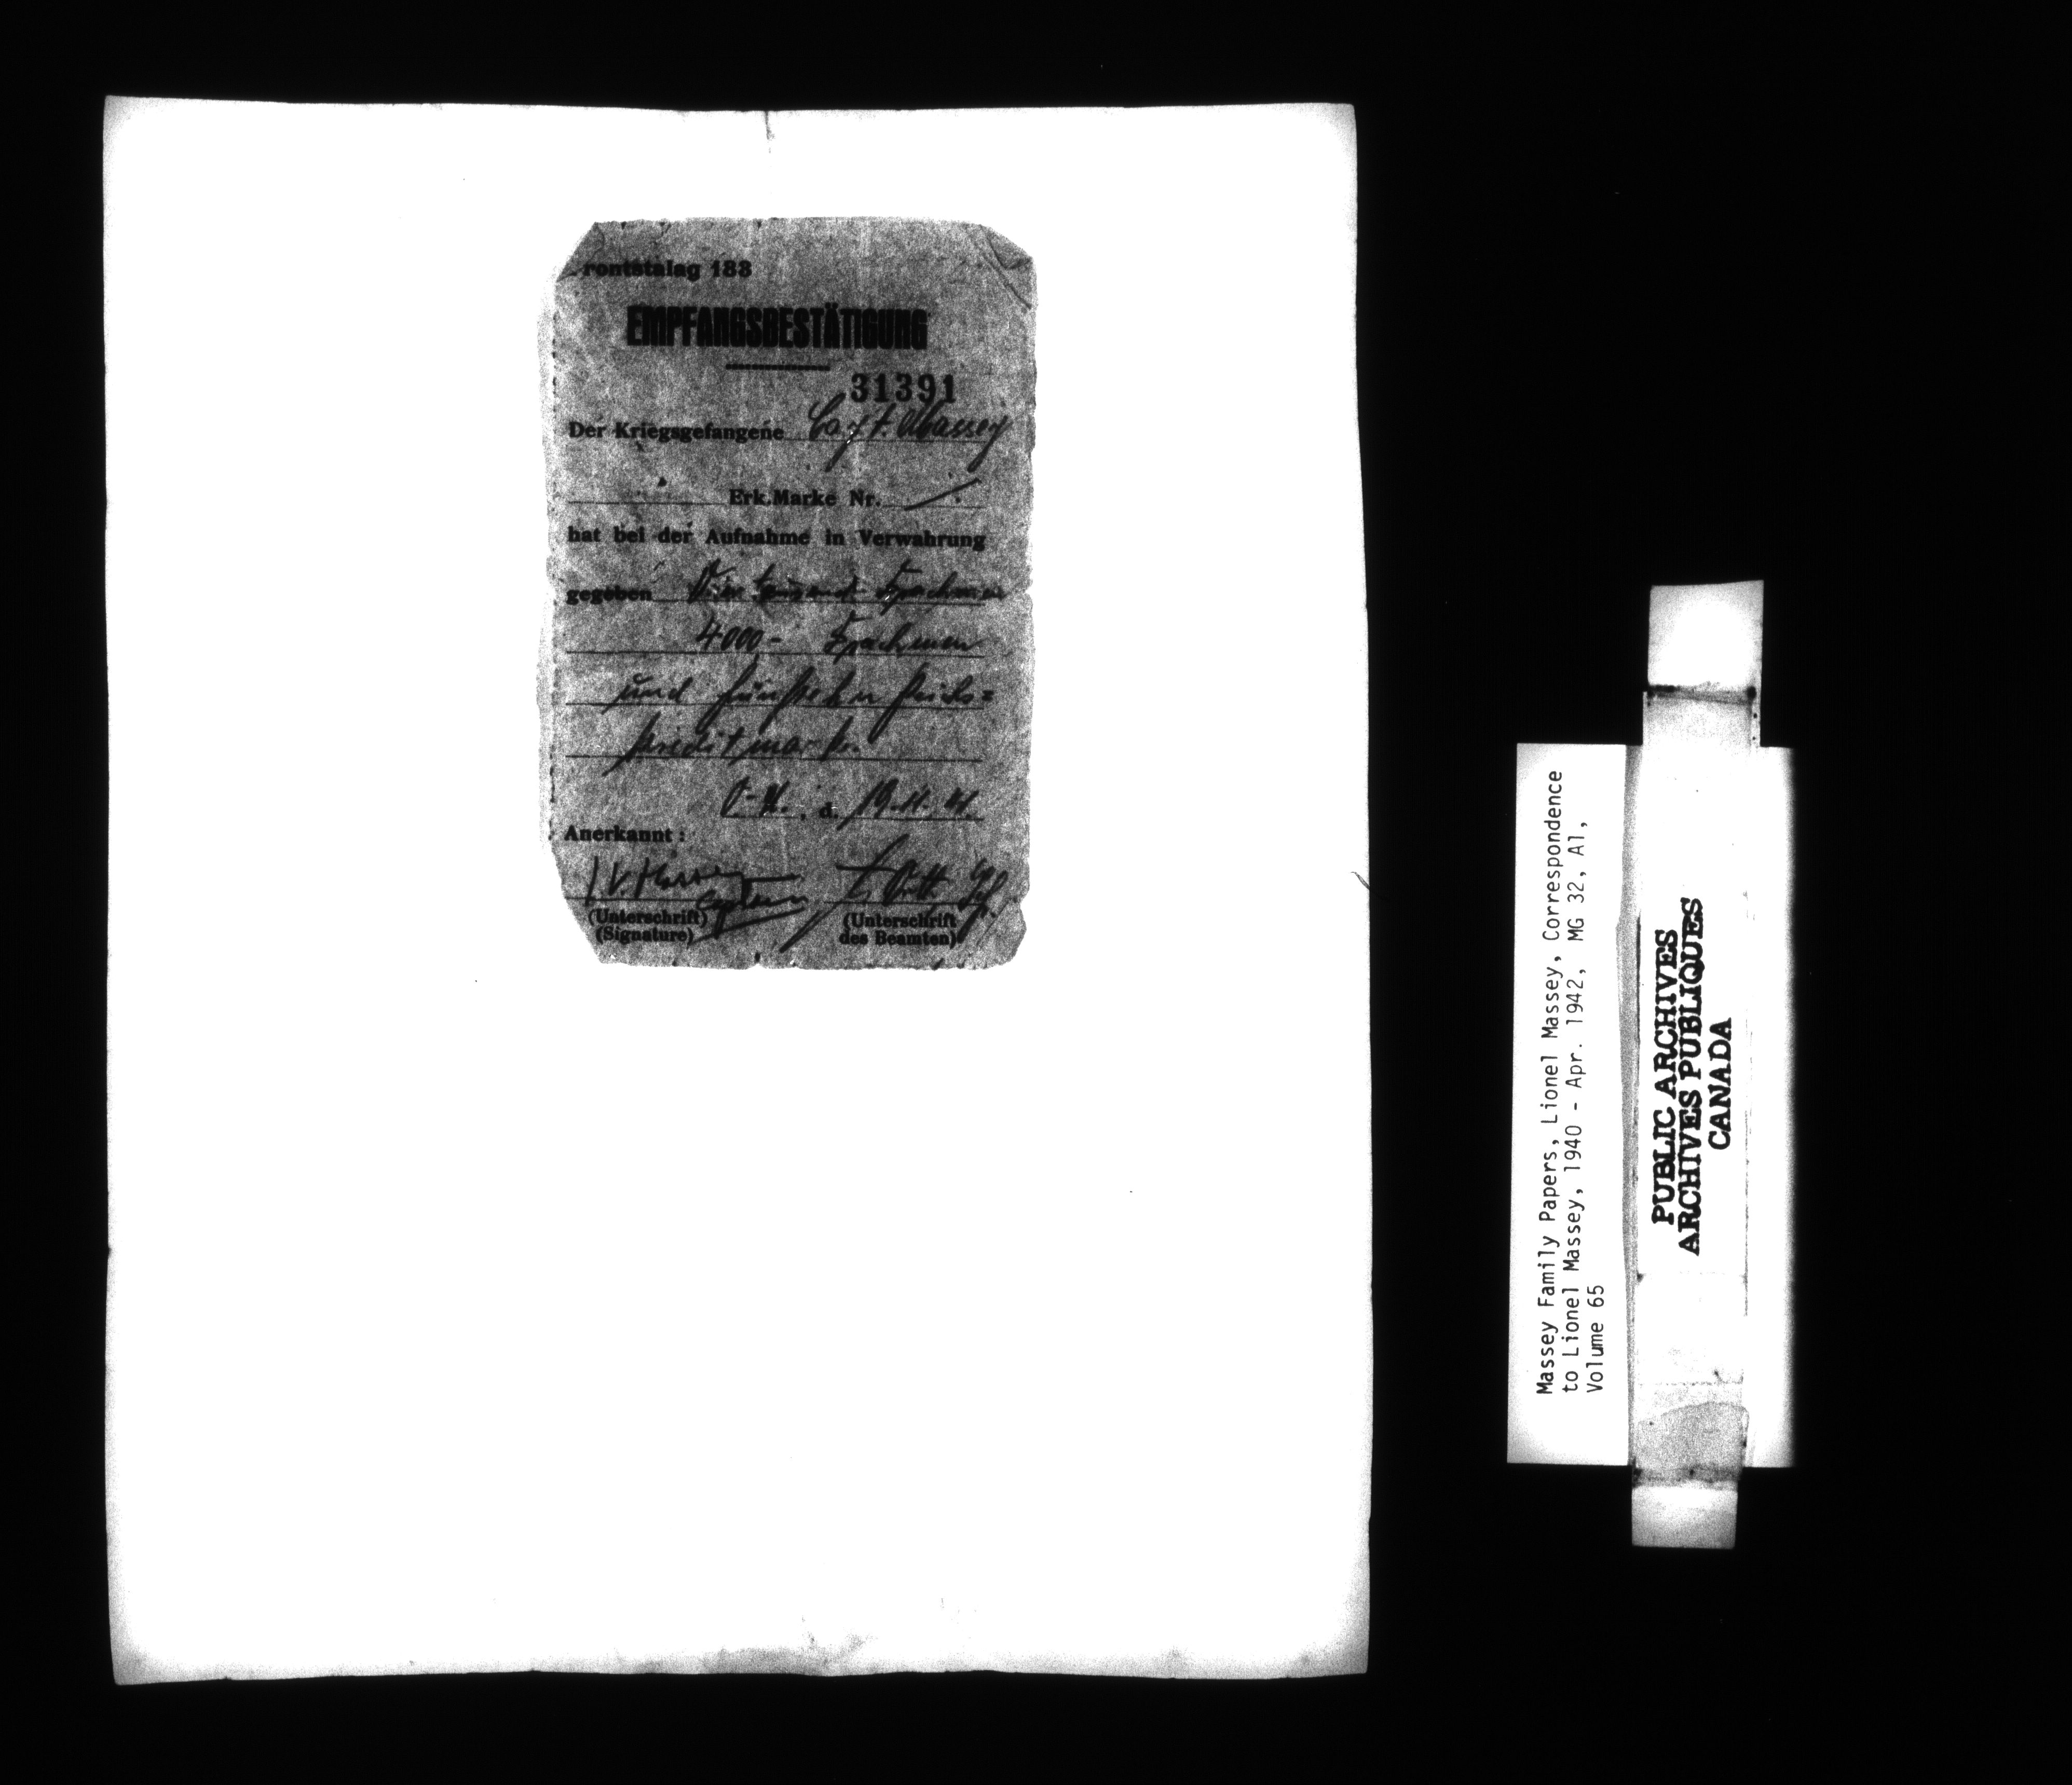 rontstalag 183
EMPFANGSBESTÄTIGUNG
31391
Der Kriegsgefangene Capt. Massey
Erk.Marke Nr. /
hat bei der Aufnahme in Verwahrung
gegeben Viertausend Drachmen
4000- Drachmen
und fünfzehn Reichs=
kreditmark.
O.U., d. 19.11.41.
Anerkannt :
Massey
Captain
(Unterschrift)
(Signature)
(Unterschrift
des Beamten)
Massey Family Papers, Lionel Massey, Correspondence
to Lionel Massey, 1940 - Apr. 1942, MG 32, A1,
Volume 65
PUBLIC ARCHIVES
ARCHIVES PUBLIQUES
CANADA